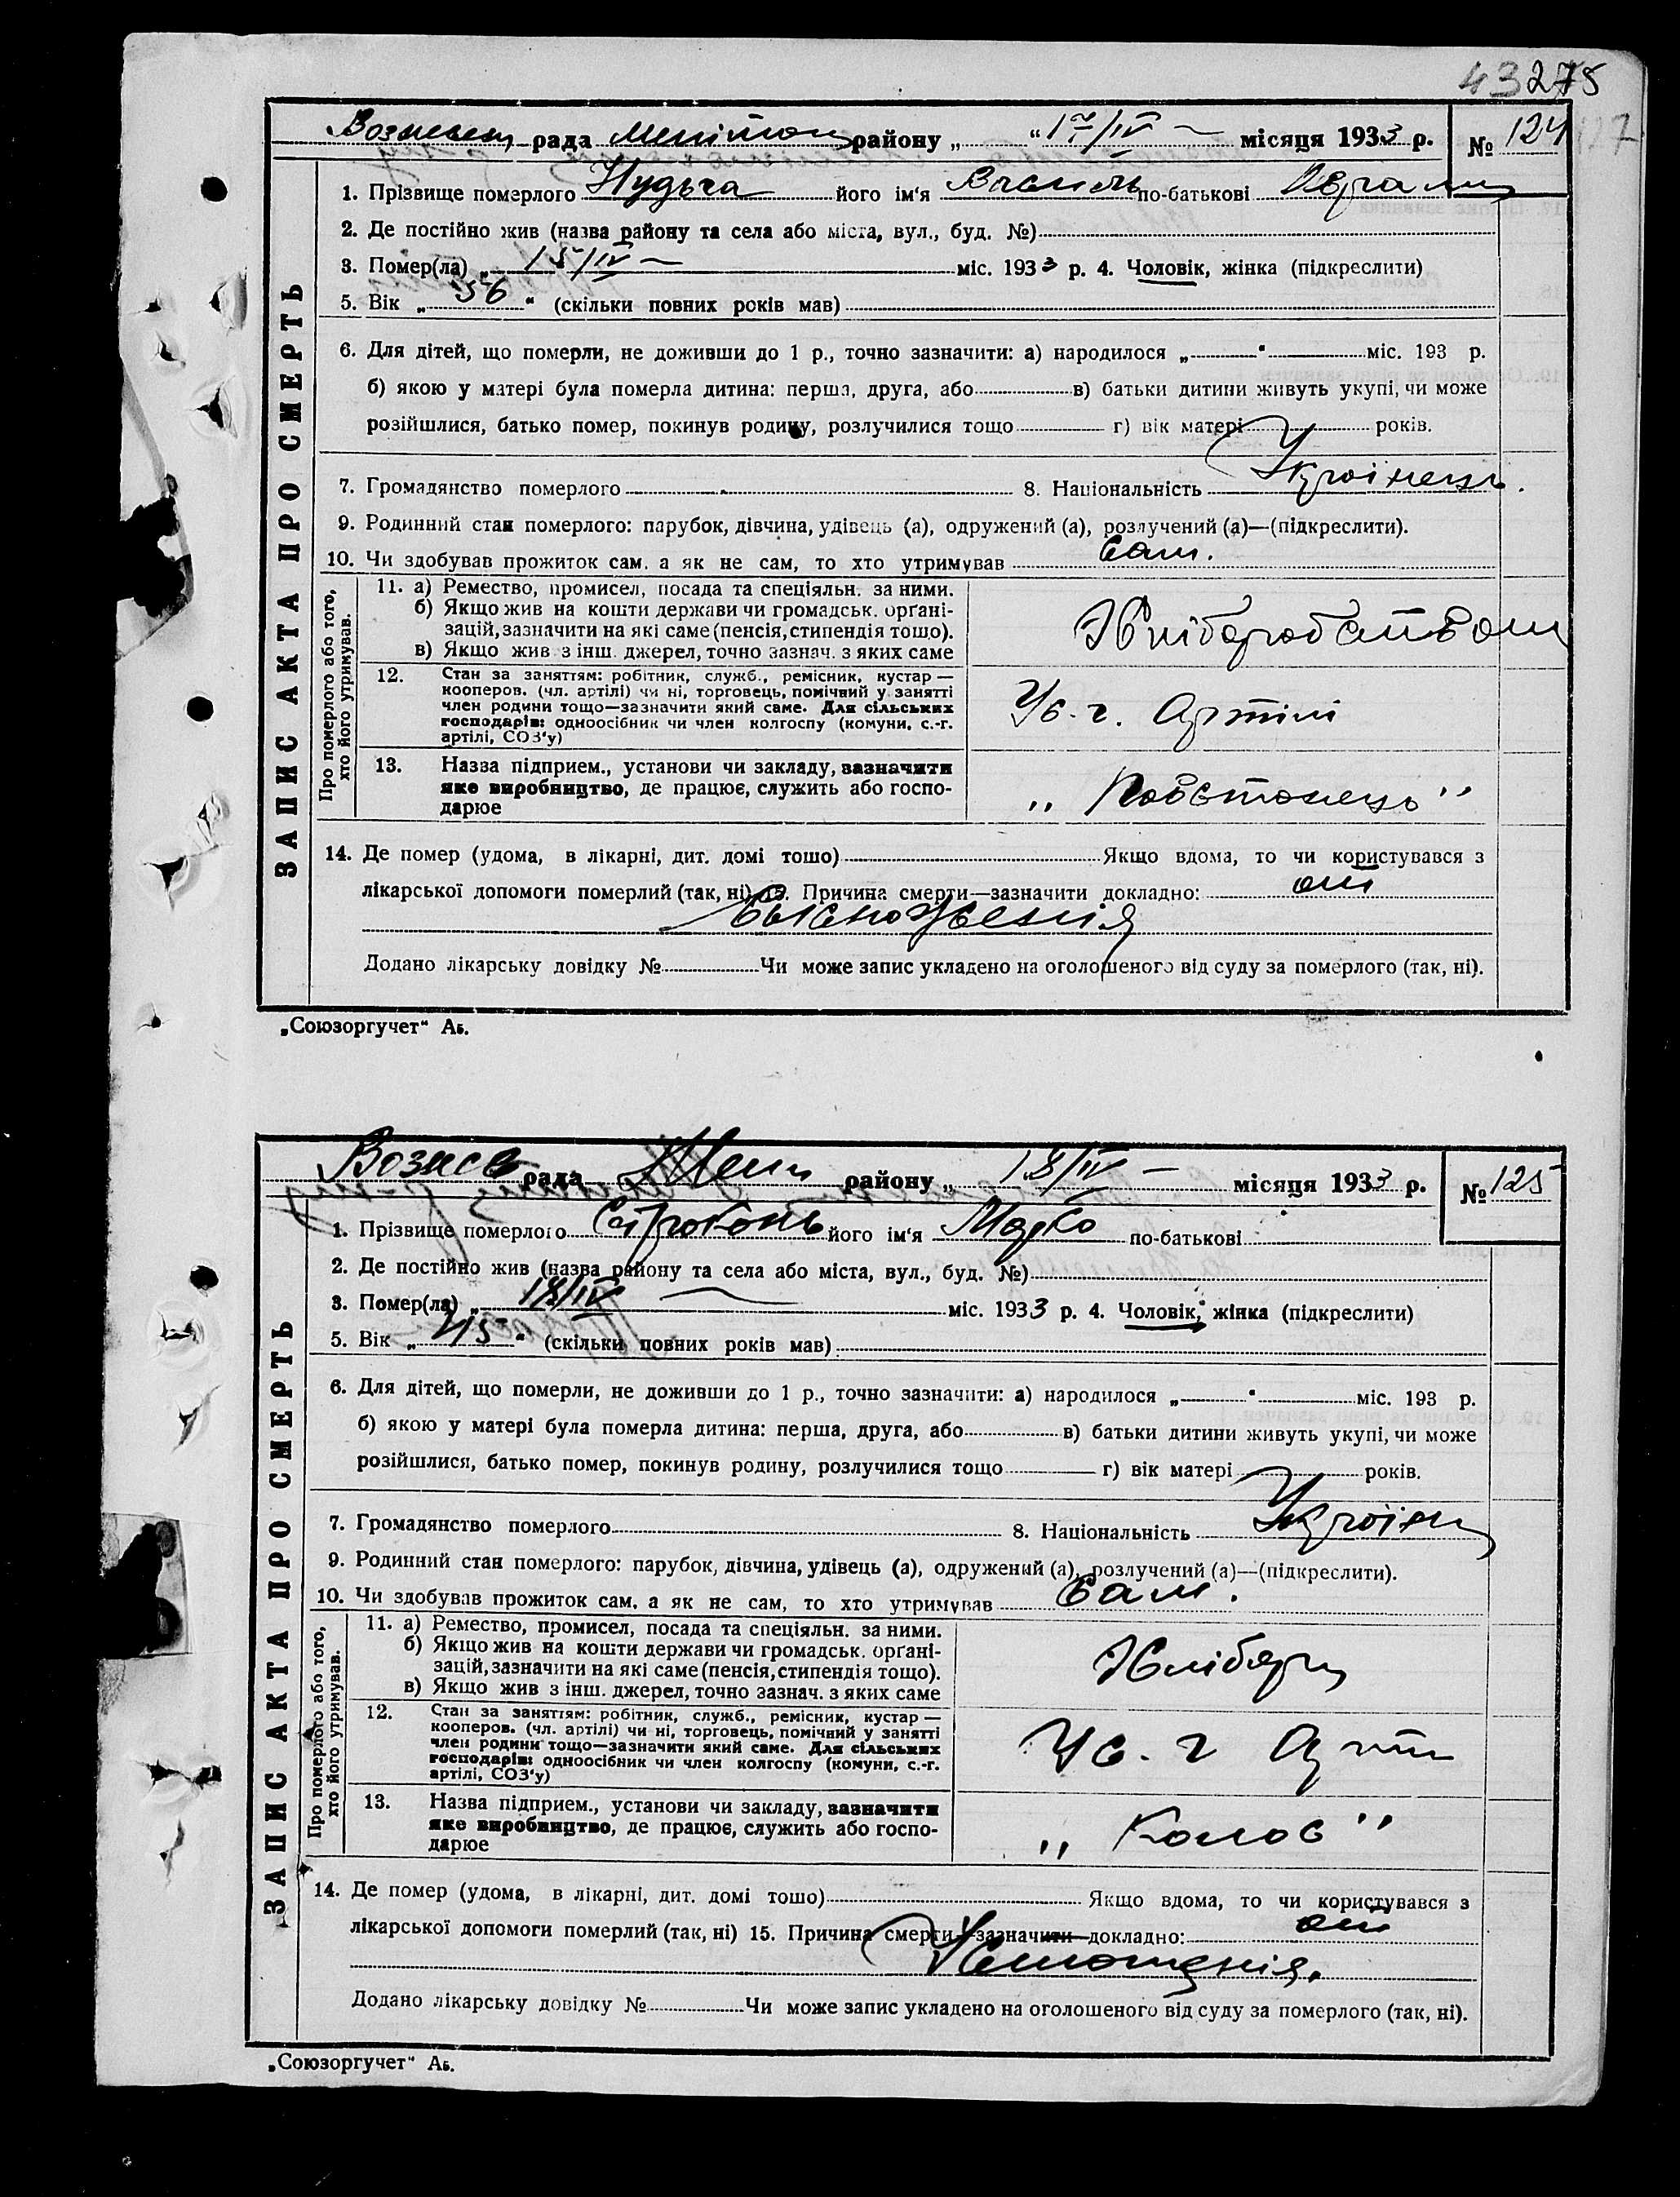 43 275
Вознесен рада Мелітоп району „ “ 17/IV — місяця 1933 р. № 124
1. Прізвище померлого Нудьга його ім'я Василь по-батькові
2. Де постійно жив (назва району та села або міста, вул., буд. №)
3. Помер(ла) „ 15/IV — міс. 1933 р. 4. Чоловік, жінка (підкреслити)
5. Вік „ 56 “ (скільки повних років мав)
6. Для дітей, що померли, не доживши до 1 р., точно зазначити: а) народилося „ “ міс. 193 р.
б) якою у матері була померла дитина: перша, друга, або в) батьки дитини живуть укупі, чи може
розійшлися, батько помер, покинув родину, розлучилися тощо г) вік матері років.
7. Громадянство померлого 8. Національність Українець.
9. Родинний стан померлого: парубок, дівчина, удівець (а), одружений (а), розлучений (а)—(підкреслити).
10. Чи здобував прожиток сам, а як не сам, то хто утримував Сам.
11. а) Ремество, промисел, посада та спеціяльн. за ними.
б) Якщо жив на кошти держави чи громадськ. орґані-
зацій, зазначити на які саме (пенсія, стипендія тощо).
в) Якщо жив з інш. джерел, точно зазнач. з яких саме
Хліборобством
12. Стан за заняттям: робітник, служб., ремісник, кустар —
кооперов. (чл. артілі) чи ні, торговець, помічний у занятті
член родини тощо—зазначити який саме. Для сільських
господарів: одноосібник чи член колгоспу (комуни, с.-г.
артілі, СОЗ'у)
Ус.-г. Артілі
13. Назва підприєм., установи чи закладу, зазначити
яке виробництво, де працює, служить або госпо-
дарює
„ Повстанець “
Про померлого або того,
хто його утримував.
ЗАПИС АКТА ПРО СМЕРТЬ
14. Де помер (удома, в лікарні, дит. домі тощо) Якщо вдома, то чи користувався з
лікарської допомоги померлий (так, ні) 15. Причина смерти—зазначити докладно: от
Додано лікарську довідку № Чи може запис укладено на оголошеного від суду за померлого (так, ні).
„Союзоргучет“ Аб.
Вознес рада Мели району „ 18/IV — місяця 1933 р. № 125
1. Прізвище померлого Строконь його ім'я Марко по-батькові
2. Де постійно жив (назва району та села або міста, вул., буд. №)
3. Помер(ла) „ 18/IV — міс. 1933 р. 4. Чоловік, жінка (підкреслити)
5. Вік „ 45 “ (скільки повних років мав)
6. Для дітей, що померли, не доживши до 1 р., точно зазначити: а) народилося „ “ міс. 193 р.
б) якою у матері була померла дитина: перша, друга, або в) батьки дитини живуть укупі, чи може
розійшлися, батько помер, покинув родину, розлучилися тощо г) вік матері років.
7. Громадянство померлого 8. Національність Українц
9. Родинний стан померлого: парубок, дівчина, удівець (а), одружений (а), розлучений (а)—(підкреслити).
10. Чи здобував прожиток сам, а як не сам, то хто утримував Сам.
11. а) Ремество, промисел, посада та спеціяльн. за ними.
б) Якщо жив на кошти держави чи громадськ. орґані-
зацій, зазначити на які саме (пенсія, стипендія тощо).
в) Якщо жив з інш. джерел, точно зазнач. з яких саме
12. Стан за заняттям: робітник, служб., ремісник, кустар —
кооперов. (чл. артілі) чи ні, торговець, помічний у занятті
член родини тощо—зазначити який саме. Для сільських
господарів: одноосібник чи член колгоспу (комуни, с.-г.
артілі, СОЗ'у)
Ус.-г Арт
13. Назва підприєм., установи чи закладу, зазначити
яке виробництво, де працює, служить або госпо-
дарює
„ Колос “
Про померлого або того,
хто його утримував.
ЗАПИС АКТА ПРО СМЕРТЬ
14. Де помер (удома, в лікарні, дит. домі тощо) Якщо вдома, то чи користувався з
лікарської допомоги померлий (так, ні) 15. Причина смерти—зазначити докладно: от
Істощенія.
Додано лікарську довідку № Чи може запис укладено на оголошеного від суду за померлого (так, ні).
„Союзоргучет“ Аб.